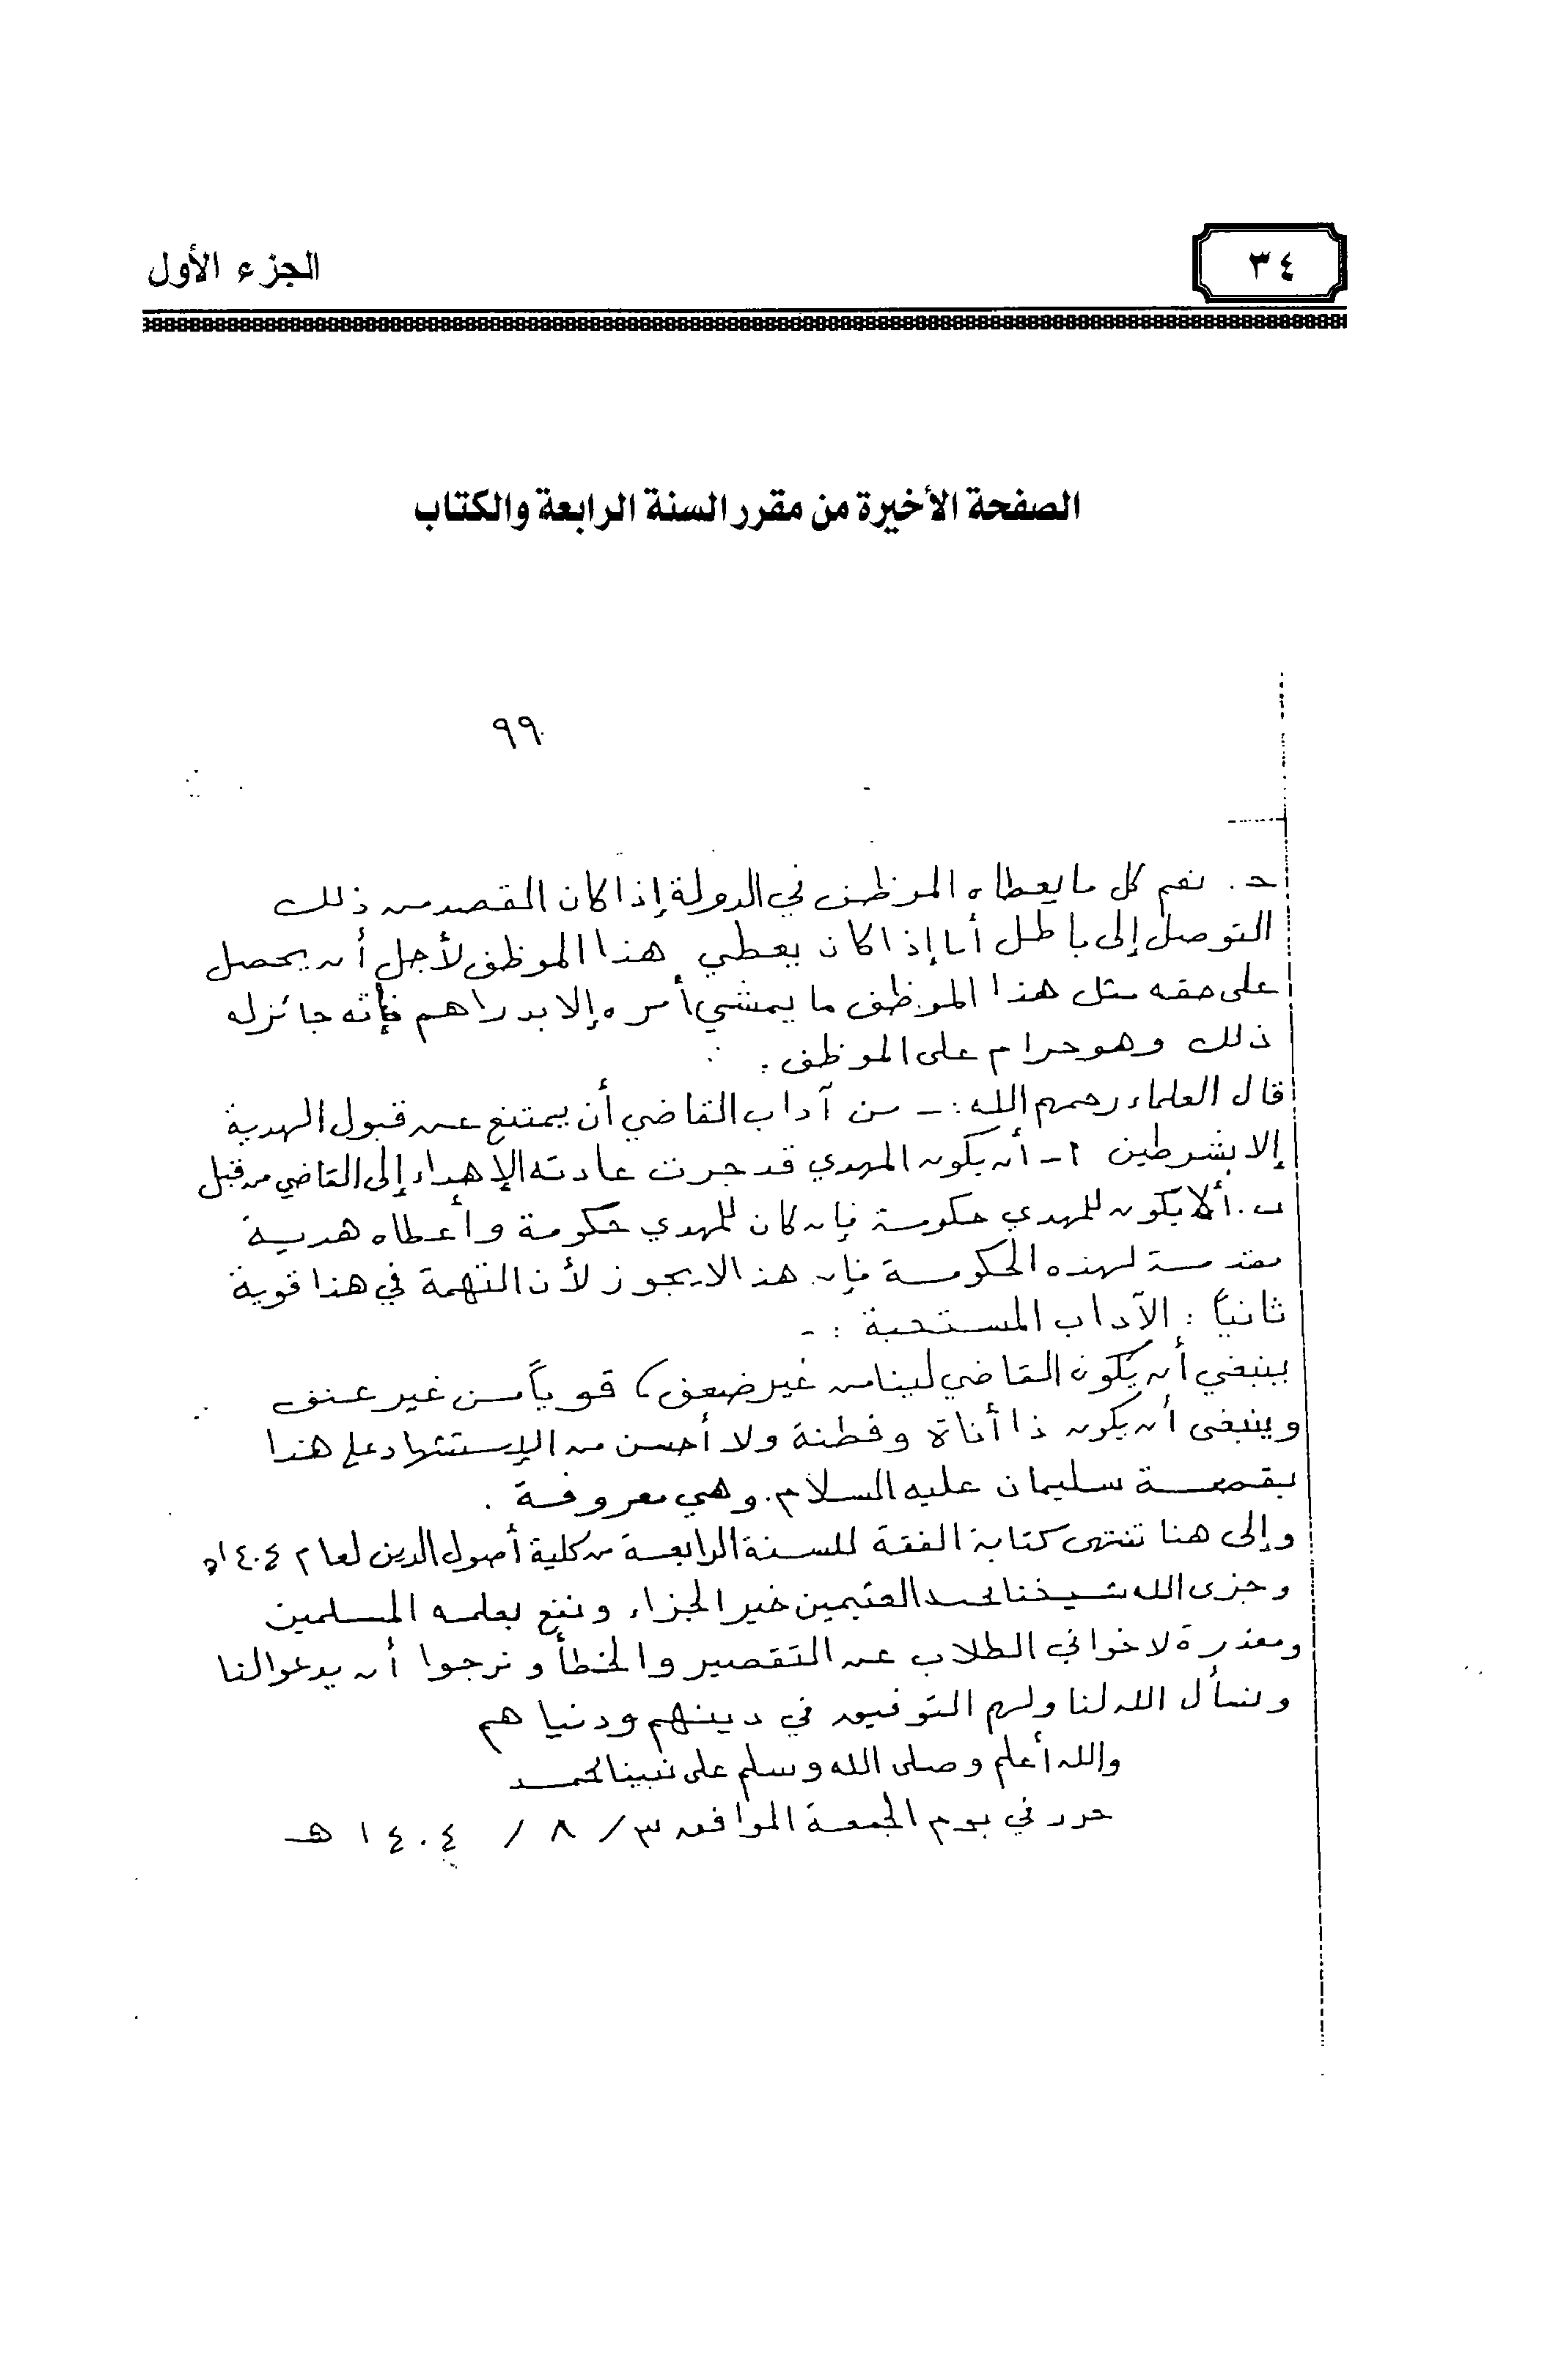 ٣٤
الجزء الأول
الصفحة الأخيرة من مقرر السنة الرابعة والكتاب
٩٩
جـ . نعم كل ما يعطاه الموظف في الدولة إذا كان القصد من ذلك
التوصل إلى باطل أما إذا كان يعطي هذا الموظف لأجل أن يحصل
على حقه مثل هذا الموظف ما يمشي أمره إلا بدراهم فإنه جائز له
ذلك وهو حرام على الموظف .
قال العلماء رحمهم الله :ـ من آداب القاضي أن يمتنع عن قبول الهدية
إلا بشرطين ١ـ أن يكون المهدي قد جرت عادته الإهداء إلى القاضي من قبل
ب . ألا يكون للمهدي حكومة فإن كان للمهدي حكومة وأعطاه هدية
مقدمة لهذه الحكومة فإن هذا لا يجوز لأن التهمة في هذا قوية
ثانياً : الآداب المستحبة :ـ
ينبغي أن يكون القاضي لينا من غير ضعف ، قوياً من غير عنف
وينبغى أن يكون ذا أناة وفطنة ولا أحسن من الإستشهاد على هذا
بقصة سليمان عليه السلام . وهي معروفة .
وإلى هنا تنتهى كتابة الفقة للسنة الرابعة من كلية أصول الدين لعام ١٤٠٤هـ
وجزى الله شيخنا محمد العثيمين خير الجزاء ونفع بعلمه المسلمين
ومعذرة لاخواني الطلاب عن التقصير والخطأ ونرجوا أن يدعوا لنا
ونسأل الله لنا ولهم التوفيق في دينهم ودنياهم
والله أعلم وصلى الله وسلم على نبينا محمد
حرر في يوم الجمعة الموافق ٣ / ٨ / ١٤٠٤ هـ